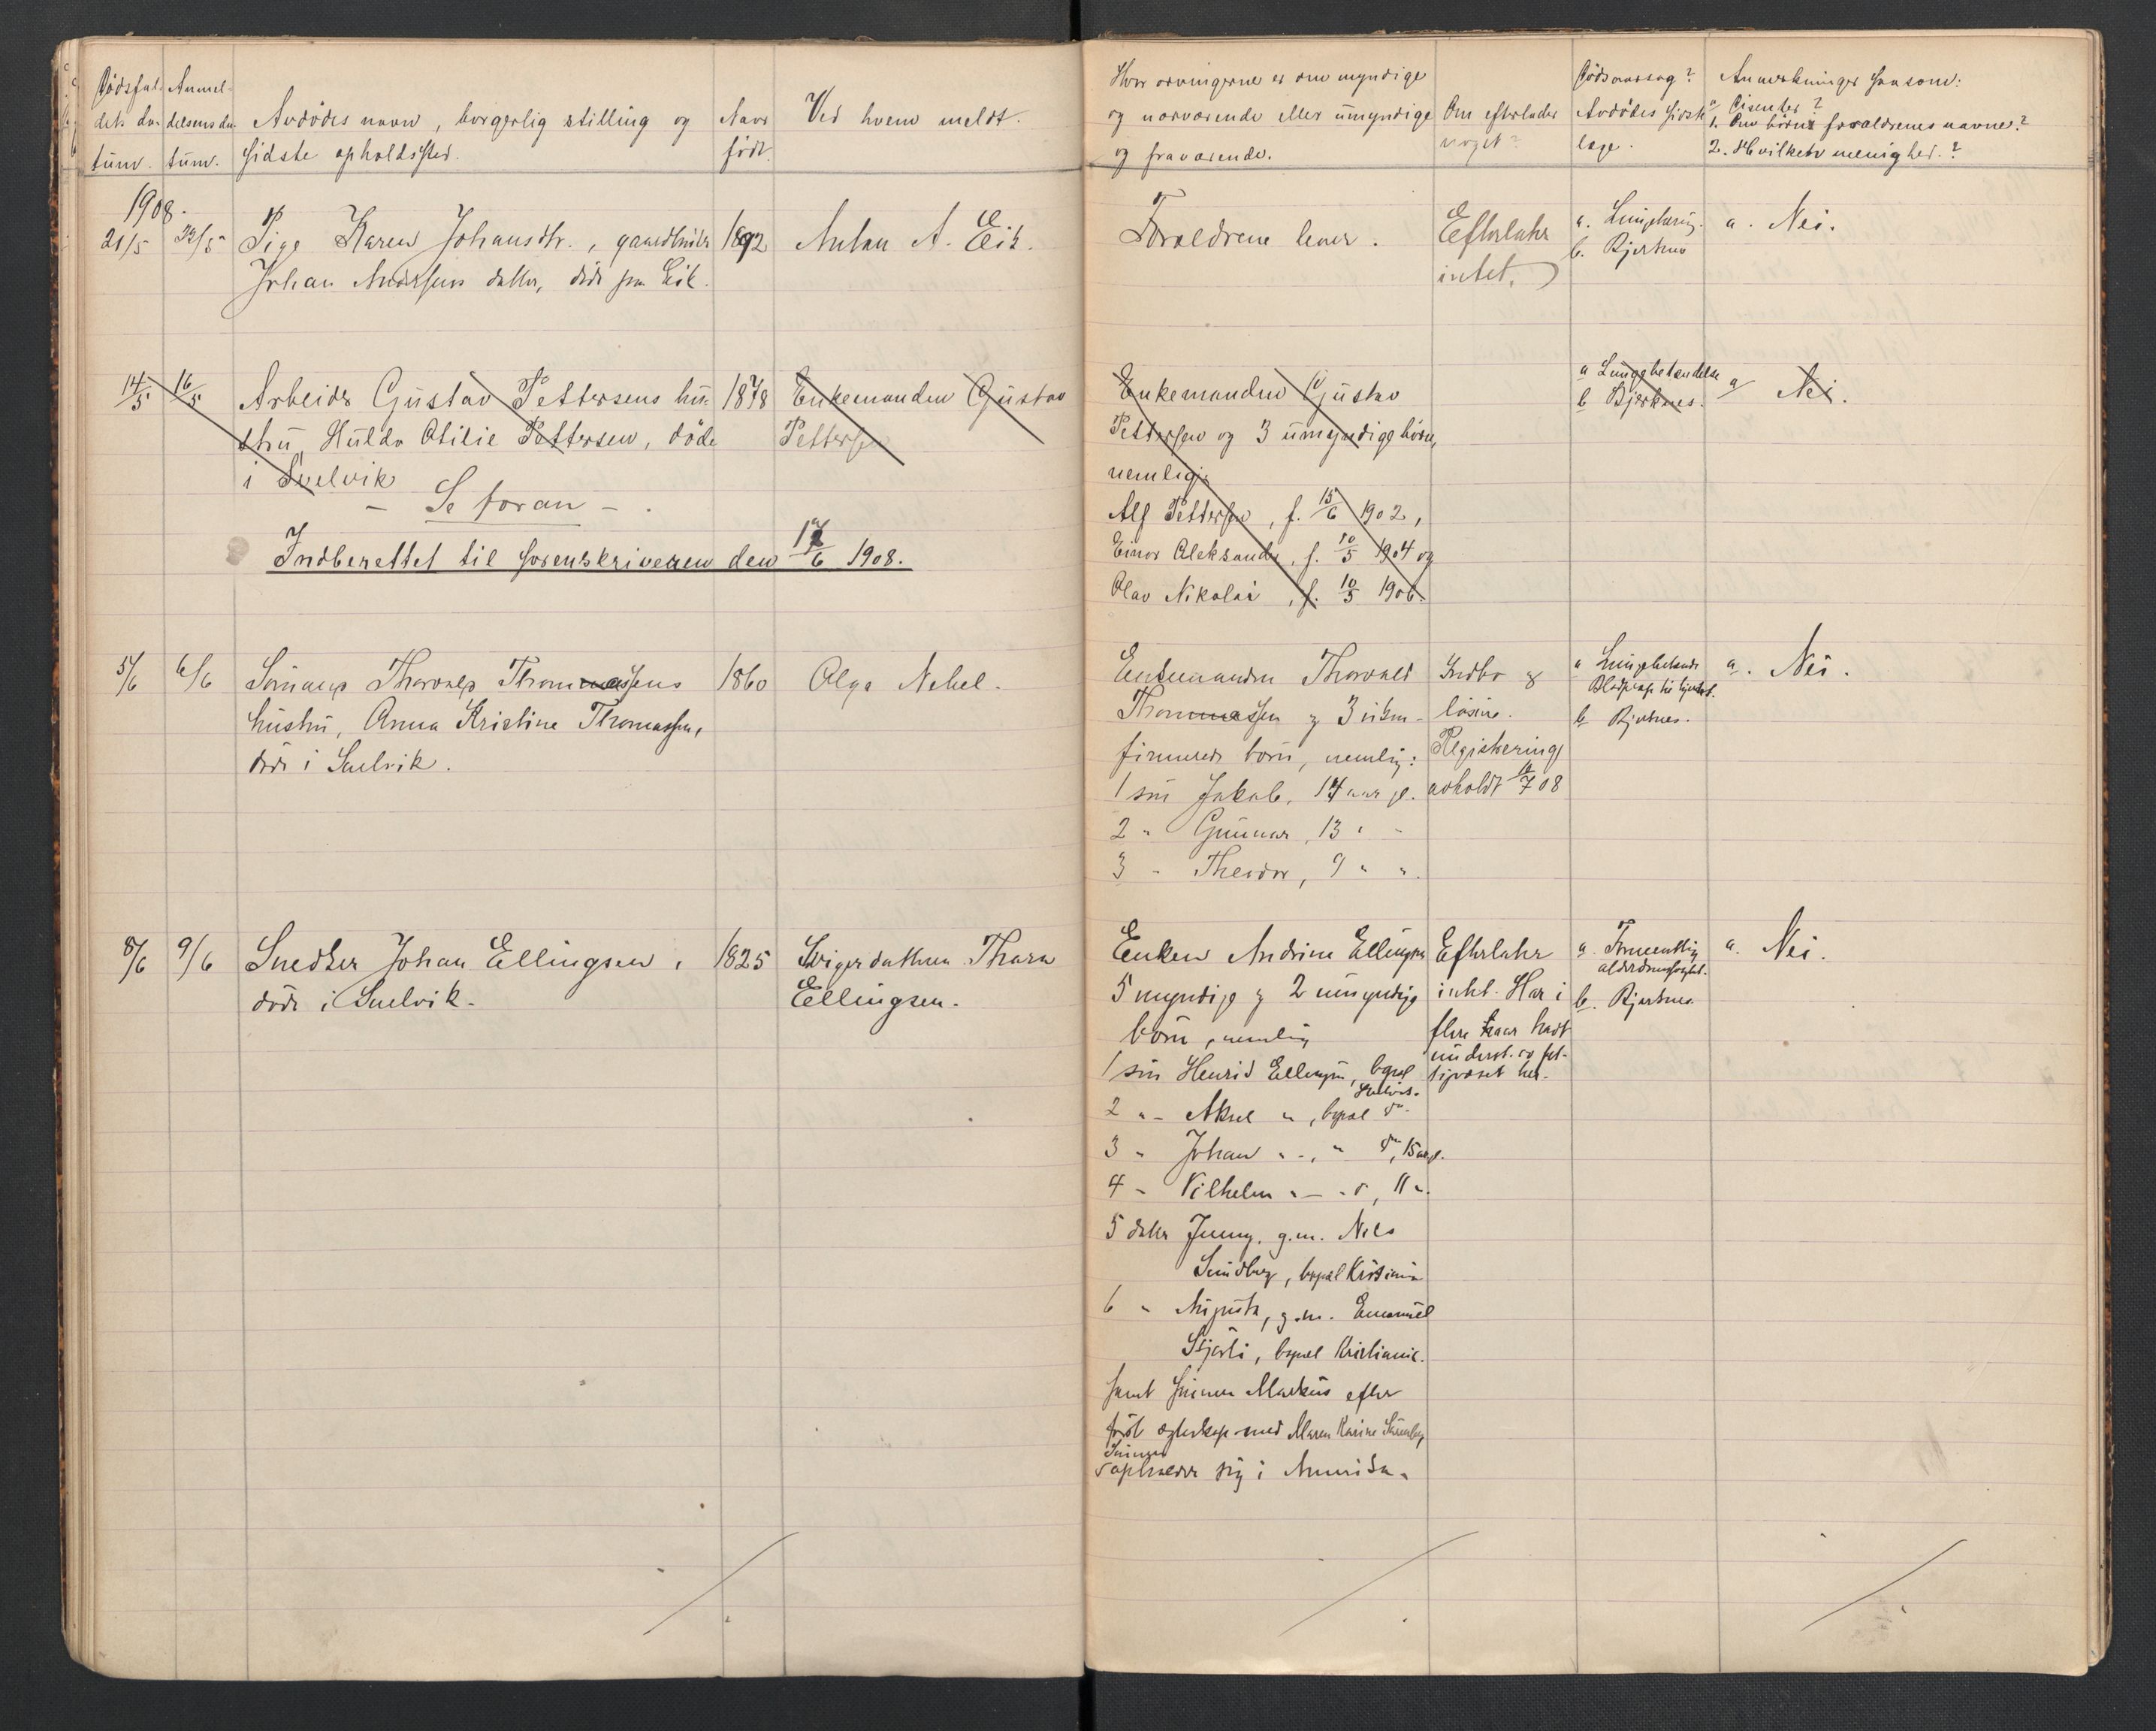 Dödsfal- Anmel-
dets da- delsens da- Avdödes navn, borgerlig stilling og Naar Ved hvem meldt.
tum. tum. sidste opholdssted. født.
1908.
21/5 22/5 Pige Karen Johansdtr., gaardbruker 1892 Anton A. Eik.
Johan Andersens datter, död paa Eik.
14/5 16/5 Arbeider Gustav Pettersens hu- 1878 Enkemanden Gustav
stru, Hulda Otilie Pettersen, döde Pettersen
i Svelvik
- Se foran -.
Indberettet til sorenskriveren den 17/6 1908.
5/6 6/6 Sömand Thorvald Thomassens 1860 Olga Nebel.
hustru, Anna Kristine Thomassen,
död i Svelvik.
8/6 9/6 Snedker Johan Ellingsen, 1825 Svigerdatteren Thora
död i Svelvik. Ellingsen.
Hvor arvingerne er om myndige Dödsaarsag? Anmerkninger saasom:
og nærværende eller umyndige Om efterlader Avdödes sidste a.
og fraværende. noget? læge. 1. Om börn forældrenes navne?
2. Hvilken menighed.?
Forældrene lever. Efterlater a. Lungetæring. a. Nei.
intet. b. Bjerknes
Enkemanden Gustav a Lungebetændelse a Nei.
Pettersen og 3 umyndige börn, b Bjerknes.
nemlig:
Alf Pettersen, f. 15/6 1902,
Einar Aleksander, f. 10/5 1904 og
Olav Nikolai, f. 10/5 1906.
Enkemanden Thorvald Indbo & a Lungebetænd a. Nei.
Thomassen og 3 ukon- lösöre. b Bjerknes.
firmerede börn, nemlig: Registrering
1 sön Jakob, 14 aar gl. avholdt 10/7 08
2 " Gunnar, 13 " "
3 " Theodor, 9 " ".
Enken Andrine Ellingsen Efterlater a. Formentlig a. Nei.
alderdomssvakhet.
5 myndige og 2 umyndige intet. Har i b. Bjerknes
börn, nemlig flere aar havt
underst. av fat-
1 sön Henrik Ellingsen, bopæl tigvæsenet her.
Svelvik.
2 " - Aksel ", bopæl do.
3 " Johan " -, " do, 15 aar gl.
4 - Vilhelm " - " do, 11 ".
5 datter Jenny, g.m. Nils
Sundberg, bopæl Kristiania
6 " Augusta, g.m. Emanuel
bopæl Kristiania.
samt sönnen Markus efter
først ægteskap med Maren Karine
Sönnen
opholder sig i Amerika.